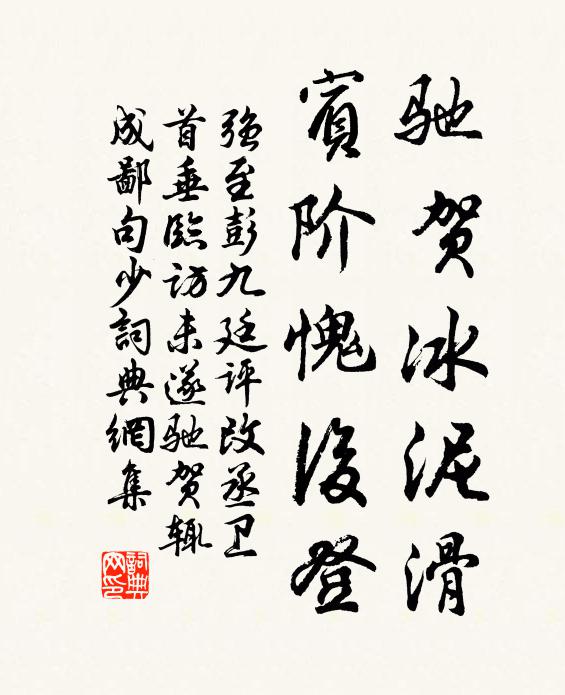 驰贺冰泥滑
賓阶愧後登
强至彭九廷评改丞卫
首垂臨访未遂驰贺辄
成鄙句少詞典網集
詞典
网印